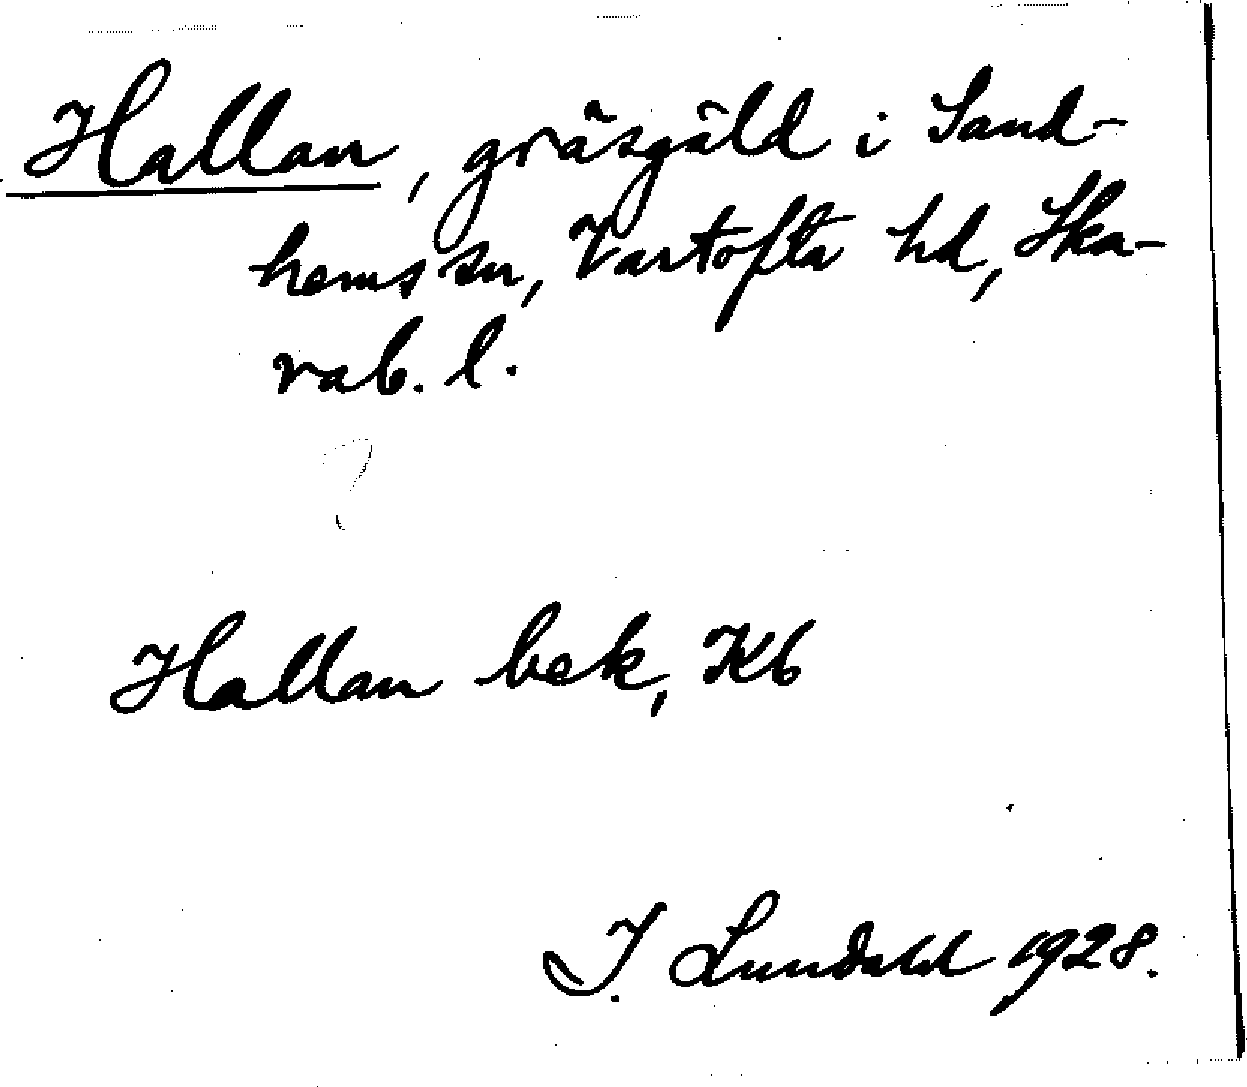 Hallan, gräsgäld i Sand-
hems sn, Vartofta hd, Ska-
rab. l.
?
Hallan bek, Kb
I. Lundahl 1928.